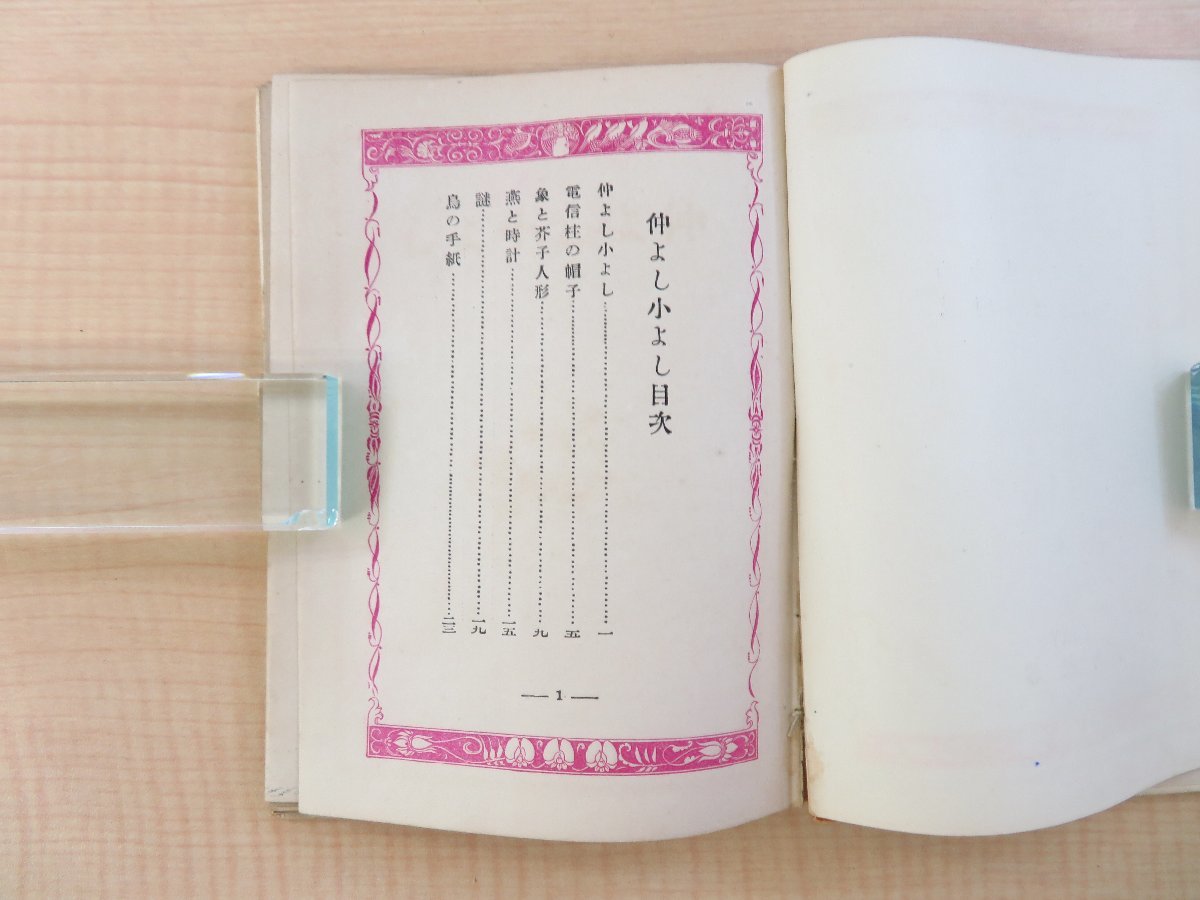 仲よし小よし目次
仲よし小よし……………………一
電信柱の帽子……………………五
象と芥子人形……………………九
燕と時計……………………一五
謎……………………一九
鳥の手紙……………………二三
— 1 —